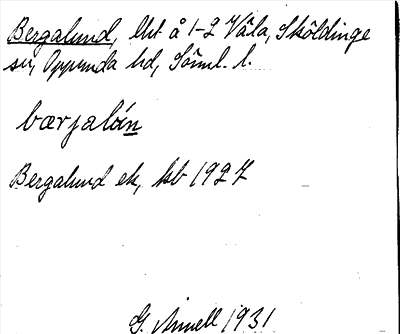 Bergalund, lht å 1-2 Våla, Sköldinge
sn, Oppunda hd, Söml. l.
bærjalún
Bergalund ek, kb 1927
G. Amell 1931